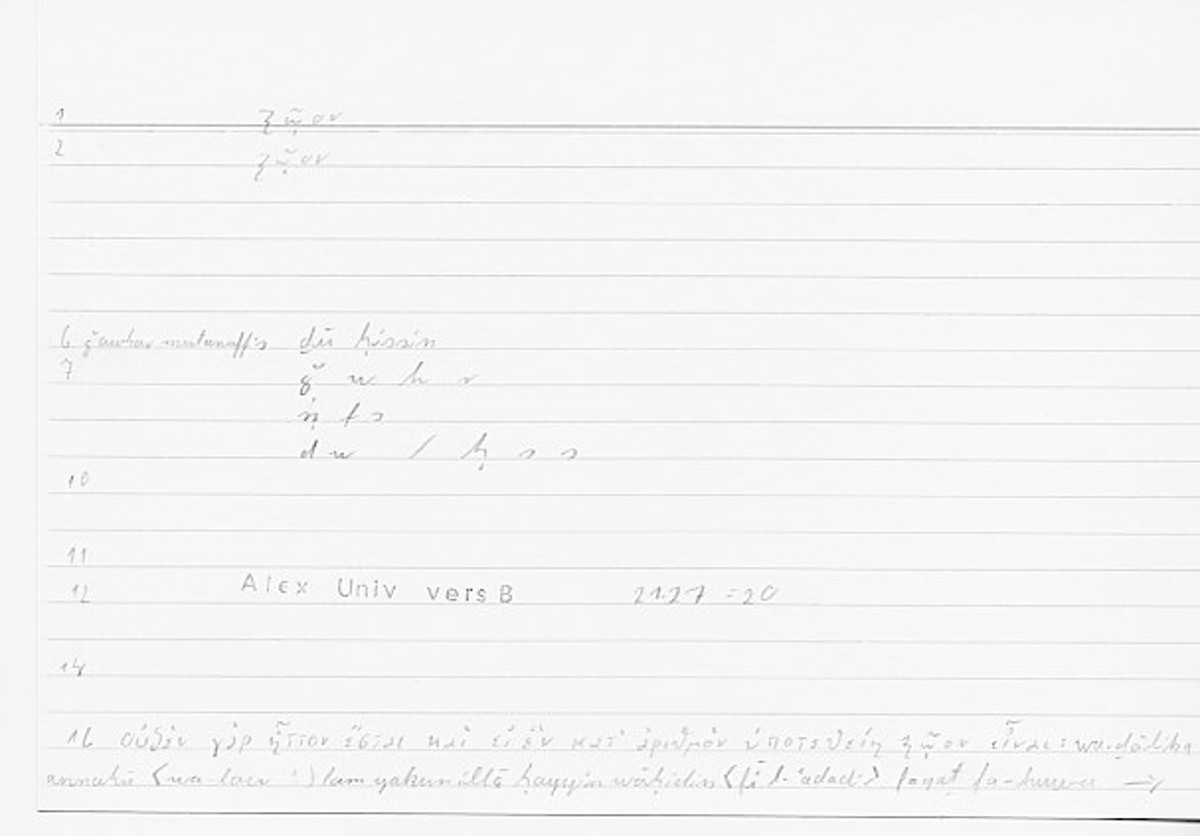 1 ζῷον
2 ζῷον
6 ǧauhar mutanaffis ḏū ḥissin
7 ǧ w h r
n f s
ḏ w / ḥ s s
10
11
12 Alex Univ vers B 21.27 = 20
14
16 οὐδὲν γὰρ ἧττον ἔσται καὶ εἰ ἓν κατ' ἀριθμὸν ὑποτεθείη ζῷον εἶναι: wa-ḏālika
annahū <wa-lau > lam yakun illā ḥayyin wāḥidin <fī l-ʿadadi> faqaṭ fa-huwa →